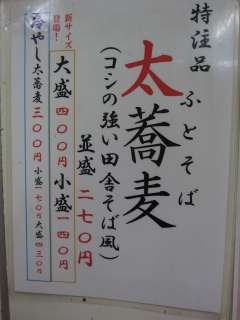 特注品
太蕎麦
ふとそば
(コシの強い田舎そば風)
並盛 二七〇円
新サイズ登場!
大盛 四〇〇円 小盛 一四〇円
冷やし太蕎麦 三〇〇円 小盛 一七〇円 大盛 四三〇円